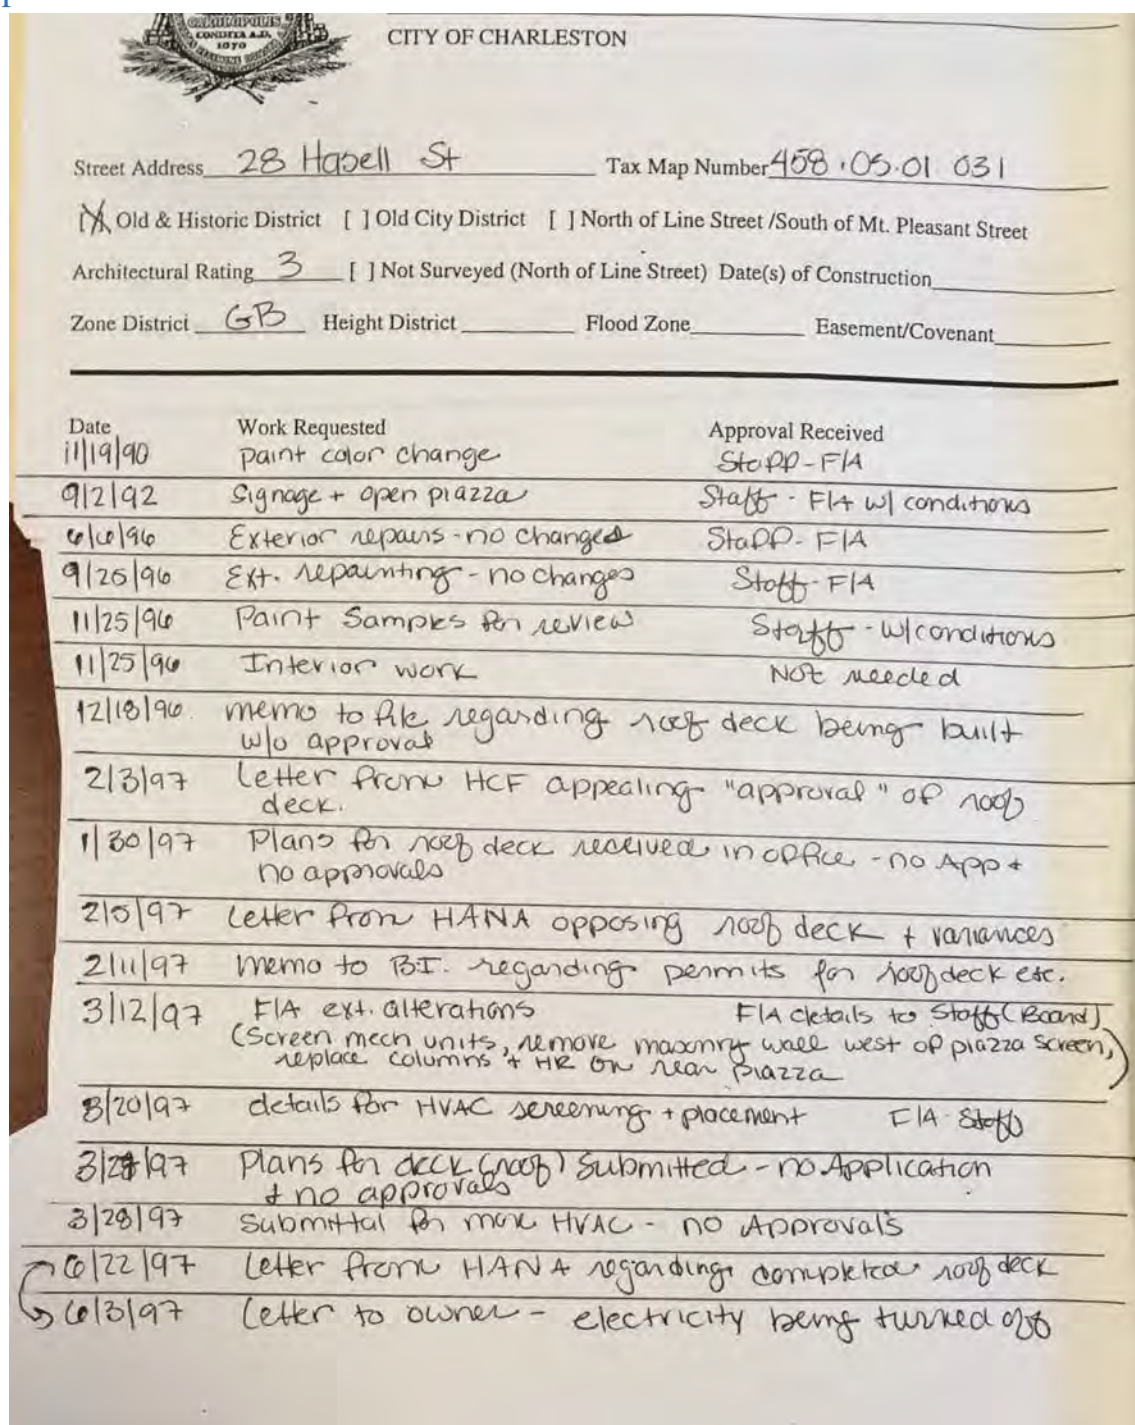 CAROLOPOLIS
CONDITA A.D.
1670
CITY OF CHARLESTON
Street Address 28 Hasell St Tax Map Number 458.05.01 031
[X] Old & Historic District [ ] Old City District [ ] North of Line Street /South of Mt. Pleasant Street
Architectural Rating 3 [ ] Not Surveyed (North of Line Street) Date(s) of Construction
Zone District GB Height District Flood Zone Easement/Covenant
Date Work Requested Approval Received
11/19/90 paint color change Staff - F/A
9/2/92 Signage + open piazza Staff - F/A w/ conditions
6/6/96 Exterior repairs - no changes Staff - F/A
9/25/96 Ext. repainting - no changes Staff - F/A
11/25/96 Paint Samples for review Staff - w/conditions
11/25/96 Interior work Not needed
12/18/96 memo to file regarding roof deck being built
w/o approval
2/3/97 Letter from HCF appealing "approval" of roof
deck.
1/30/97 Plans for roof deck received in office - no App +
no approvals
2/5/97 Letter from HANA opposing roof deck + variances
2/11/97 memo to B.I. regarding permits for roof deck etc.
3/12/97 F/A ext. alterations F/A details to Staff (Board)
(Screen mech units, remove masonry wall west of piazza screen,
replace columns + HR on rear piazza)
3/20/97 details for HVAC screening + placement F/A - Staff
3/27/97 Plans for deck (roof) submitted - no Application
+ no approvals
3/28/97 Submittal for more HVAC - no Approvals
6/22/97 Letter from HANA regarding completed roof deck
6/3/97 Letter to owner - electricity being turned off